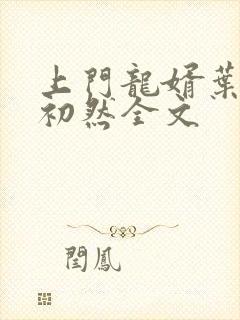 上門龍婿葉
初然全文
閏鳳